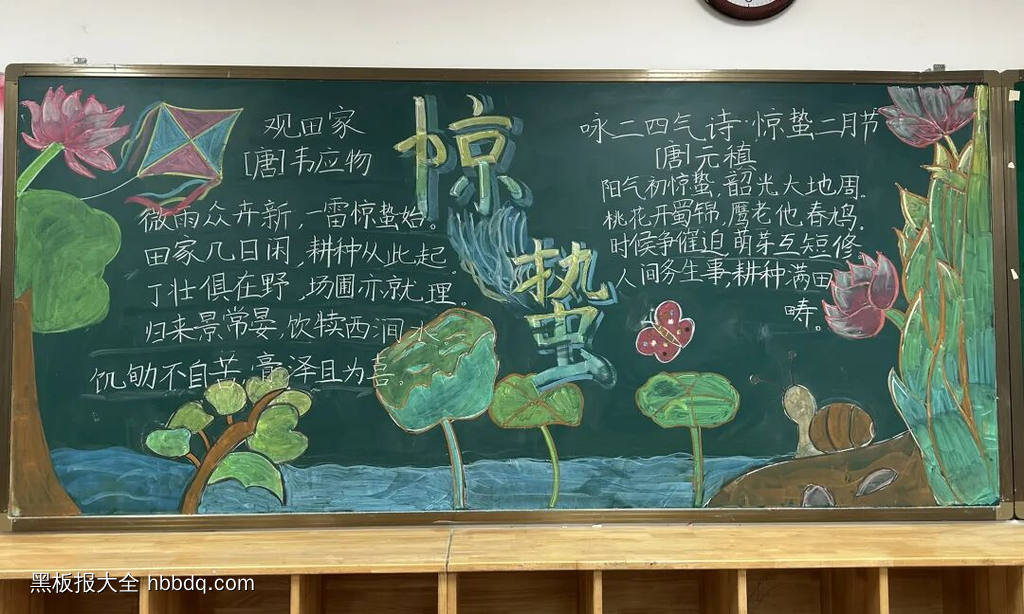 观田家
[唐]韦应物
微雨众卉新，一雷惊蛰始。
田家几日闲，耕种从此起。
丁壮俱在野，场圃亦就理。
归来景常晏，饮犊西涧水
饥劬不自苦，膏泽且为喜。
惊蛰
咏二四气诗·惊蛰二月节
[唐]元稹
阳气初惊蛰，韶光大地周.
桃花开蜀锦，鹰老他.春鸠.
时候争催迫，萌芽互短修
人间务生事，耕种满田
畴。
黑板报大全 hbbdq.com